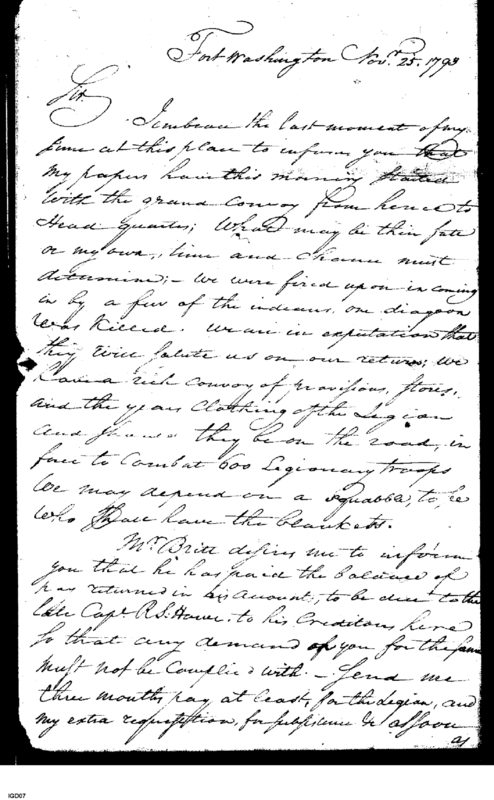 Fort Washington Novr. 25. 1793
Sir.
I embrace the last moment of my
time at this place to inform you that
my papers have this morning started
with the grand convoy from hence to
Head quarters; What may be their fate
or my own, time and chance must
determine; - We were fired upon in coming
in by a few of the indians, one dragoon
was killed. We are in expectation that
they will salute us on our return; We
have a rich convoy of provisions, stores,
and the years Clothing of the Legion
and they be on the road, in
force to Combat 600 Legionary troops
We may depend on a squabble, to, be
who shall have the blankets.
Mr. Britt desires me to inform
you that he has paid the balance of
pay returned in his Account, to be due to the
late Capt. R. S. Howe, to his Creditors here
so that any demand of you for the same
must not be Complied with. - Send me
three months pay at least, for the Legion, and
my extra requisition, for subsistence &c as soon
as
IGD07